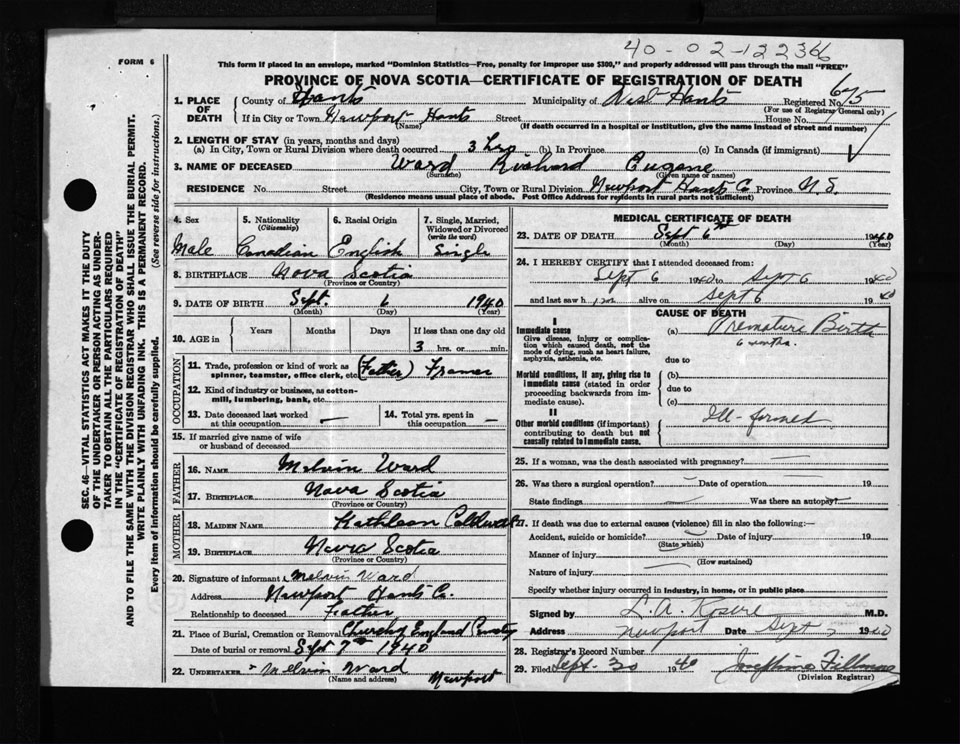 40-02-12236
FORM 6
This form if placed in an envelope, marked "Dominion Statistics—Free, penalty for improper use $300," and properly addressed will pass through the mail "FREE"
PROVINCE OF NOVA SCOTIA—CERTIFICATE OF REGISTRATION OF DEATH
675
1. PLACE OF DEATH County of Hants Municipality of West Hants Registered No.
(For use of Registrar General only)
If in City or Town Newport Hants Street House No.
(Name) (If death occurred in a hospital or institution, give the name instead of street and number)
2. LENGTH OF STAY (in years, months and days)
(a) In City, Town or Rural Division where death occurred 3 hrs (b) In Province (c) In Canada (if immigrant)
3. NAME OF DECEASED Ward Richard Eugene
(Surname) (Given name or names)
RESIDENCE No. Street City, Town or Rural Division Newport Hants Co Province N.S.
(Residence means usual place of abode. Post Office Address for residents in rural parts not sufficient)
4. Sex 5. Nationality (Citizenship) 6. Racial Origin 7. Single, Married, Widowed or Divorced (write the word)
Male Canadian English Single
8. BIRTHPLACE Nova Scotia
(Province or Country)
9. DATE OF BIRTH Sept. 6 1940
(Month) (Day) (Year)
10. AGE in Years Months Days If less than one day old
3 hrs. or min.
OCCUPATION
11. Trade, profession or kind of work as spinner, teamster, office clerk, etc. (Father) Framer
12. Kind of industry or business, as cotton-mill, lumbering, bank, etc.
13. Date deceased last worked at this occupation — 14. Total yrs. spent in this occupation —
15. If married give name of wife or husband of deceased
FATHER
16. NAME Melvin Ward
17. BIRTHPLACE Nova Scotia
(Province or Country)
MOTHER
18. MAIDEN NAME Kathleen Caldwell
19. BIRTHPLACE Nova Scotia
(Province or Country)
20. Signature of informant Melvin Ward
Address Newport Hants Co.
Relationship to deceased Father
21. Place of Burial, Cremation or Removal Church of England
Date of burial or removal Sept 7th 1940
22. UNDERTAKER Melvin Ward Newport
(Name and address)
MEDICAL CERTIFICATE OF DEATH
23. DATE OF DEATH Sept 6th 1940
(Month) (Day) (Year)
24. I HEREBY CERTIFY that I attended deceased from:
Sept 6 1940 to Sept 6 1940
and last saw him alive on Sept 6 1940
CAUSE OF DEATH
I
Immediate cause
Give disease, injury or complication which caused death, not the mode of dying, such as heart failure, asphyxia, asthenia, etc.
(a) Premature Birth
6 months.
due to
Morbid conditions, if any, giving rise to immediate cause (stated in order proceeding backwards from immediate cause).
(b)
due to
(c)
II
Other morbid conditions (if important) contributing to death but not causally related to immediate cause.
Ill-formed
25. If a woman, was the death associated with pregnancy? —
26. Was there a surgical operation? — Date of operation 19
State findings — Was there an autopsy?
27. If death was due to external causes (violence) fill in also the following:—
Accident, suicide or homicide? Date of injury 19
(State which)
Manner of injury
(How sustained)
Nature of injury
Specify whether injury occurred in industry, in home, or in public place
Signed by L.A. M.D.
Address Newport Date Sept 1940
28. Registrar's Record Number
29. Filed Sept. 30 1940 Josephine Fillmore
(Division Registrar)
SEC. 46—VITAL STATISTICS ACT MAKES IT THE DUTY
OF THE UNDERTAKER OR PERSON ACTING AS UNDER-
TAKER TO OBTAIN ALL THE PARTICULARS REQUIRED
IN THE "CERTIFICATE OF REGISTRATION OF DEATH"
AND TO FILE THE SAME WITH THE DIVISION REGISTRAR WHO SHALL ISSUE THE BURIAL PERMIT.
WRITE PLAINLY WITH UNFADING INK. THIS IS A PERMANENT RECORD.
Every item of information should be carefully supplied. (See reverse side for instructions.)